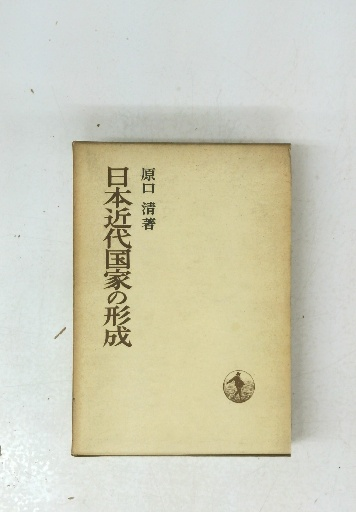 原口 清著
日本近代国家の形成